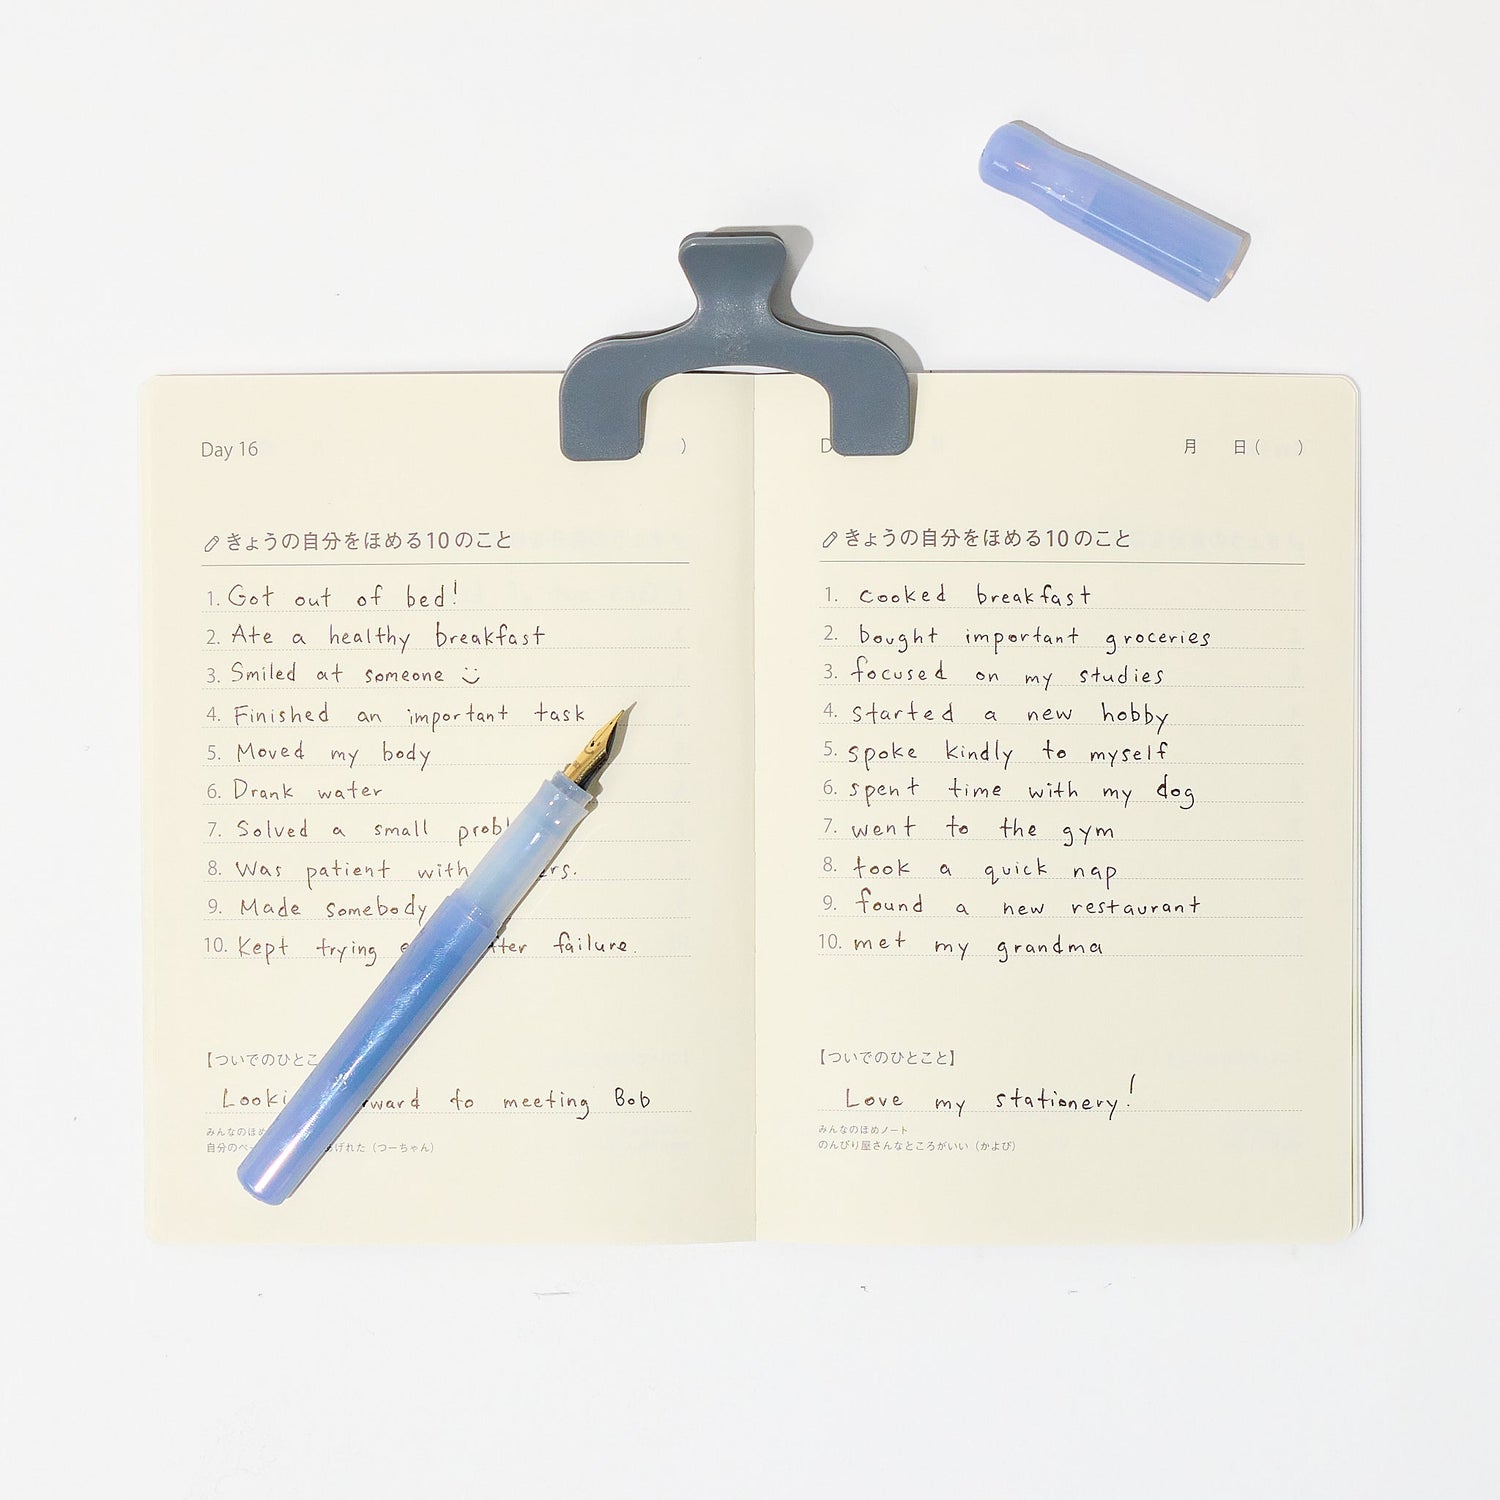 Day 16
)
きょうの自分をほめる10のこと
1. Got out of bed!
2. Ate a healthy breakfast
3. Smiled at someone
4. Finished an important task
5. Moved my body
6. Drank water
7. Solved a small
8. Was patient with
9. Made somebody
10. Kept trying failure.
【ついでのひとこ
to meeting Bob
みんなのほめ
自分の （つーちゃん）
月 日 ( )
きょうの自分をほめる10のこと
1. cooked breakfast
2. bought important groceries
3. focused on my studies
4. started a new hobby
5. spoke kindly to myself
6. spent time with my dog
7. went to the gym
8. took a quick nap
9. found a new restaurant
10. met my grandma
【ついでのひとこと】
Love my stationery!
みんなのほめノート
のんびり屋さんなところがいい（かよぴ）